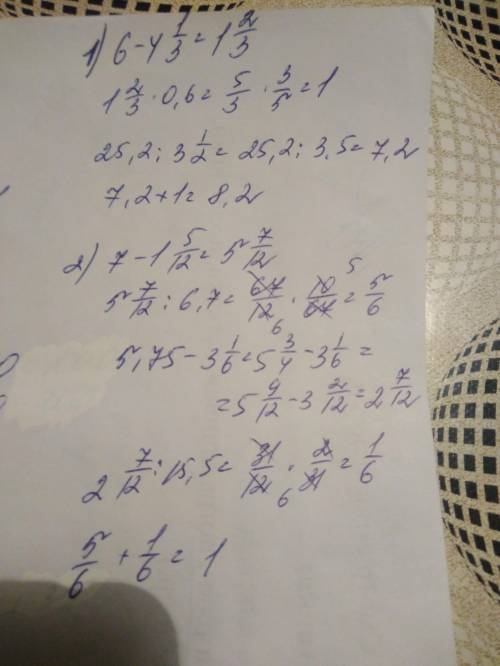 1) 6 - 4 1/3 = 1 2/3
1 2/3 · 0,6 = 5/3 · 3/5 = 1
25,2 : 3 1/2 = 25,2 : 3,5 = 7,2
7,2 + 1 = 8,2
2) 7 - 1 5/12 = 5 7/12
5 7/12 : 6,7 = 67/12 6 · 10 5/67 = 5/6
5,75 - 3 1/6 = 5 3/4 - 3 1/6 =
= 5 9/12 - 3 2/12 = 2 7/12
2 7/12 : 15,5 = 31/12 6 · 2/31 = 1/6
5/6 + 1/6 = 1